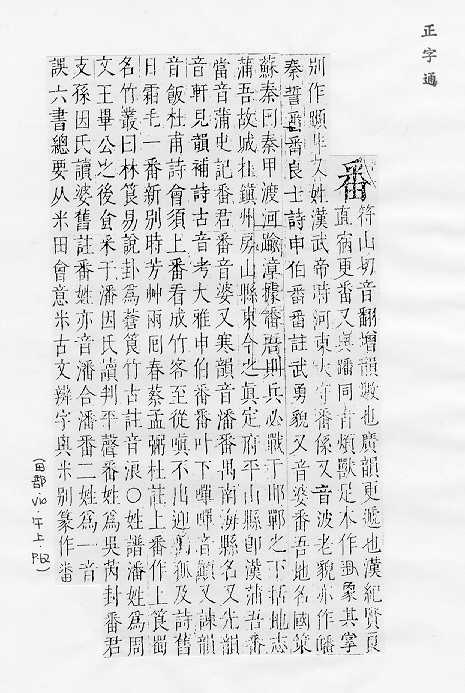 正字通
番
符山切音翻增韻數也廣韻更遞也漢紀賢良
直宿更番又與蹯同音煩獸足本作番象其掌
別作蹞非又姓漢武帝時河東太守番係又音波老貌亦作皤
秦誓番番良士詩申伯番番註武勇貌又音婆番吾地名國策
蘇秦曰秦甲渡河踰漳據番吾則兵必戰于邯鄲之下括地志
蒲吾故城在鎮州房山縣東今之眞定府平山縣卽漢蒲吾番
當音蒲史記番君番音婆又寒韻音潘番禺南海縣名又先韻
音軒見韻補詩古音考大雅申伯番番叶下嘽嘽音顚又諫韻
音飯杜甫詩會須上番看成竹客至從嗔不出迎孤及詩舊
日霜毛一番新別時芳艸兩囘春蔡孟弼杜註上番作上筤蜀
名竹叢曰林筤易說卦爲蒼筤竹古註音浪○姓譜潘姓爲周
文王畢公之後食采于潘因氏讀判平聲番姓爲吳芮封番君
支孫因氏讀婆舊註番姓亦音潘合潘番二姓爲一音
誤六書總要从米田會意米古文辨字與米別篆作番
(田部 v10 午上 P2)